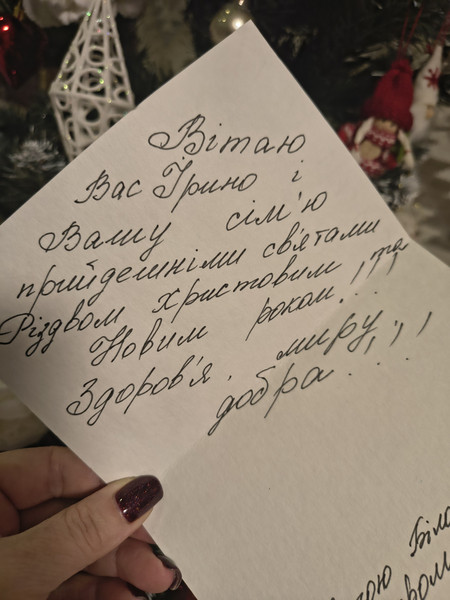 Вітаю
Вас Ірино і
Вашу сім'ю
прийдешніми св'ятами
Різдвом Христовим та
Новим роком!!!
Здоров'я, миру,
добра!!!